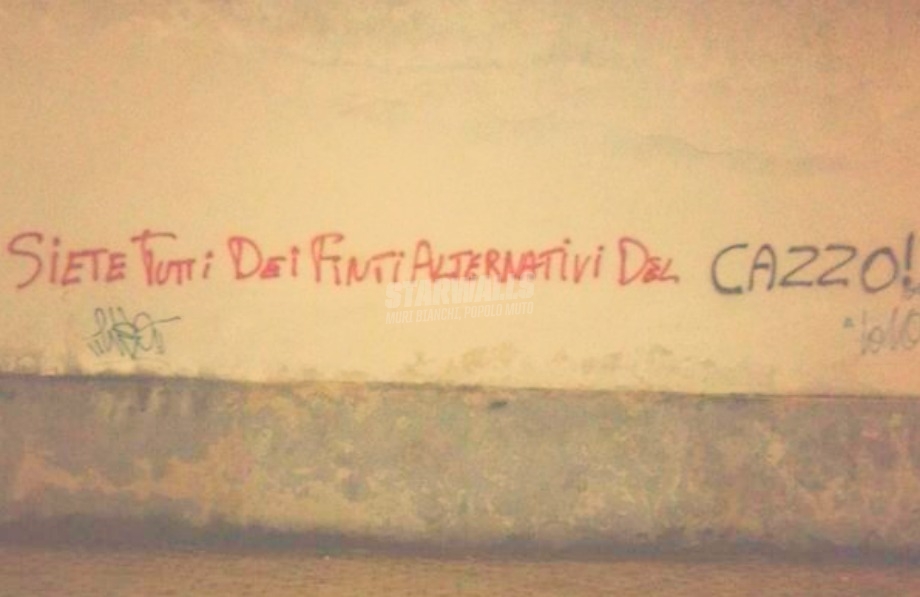 SiETE TUTTi DEi FiNTi ALTERNATiVi DEL CAZZO!
STARWALLS
MURI BIANCHI, POPOLO MUTO